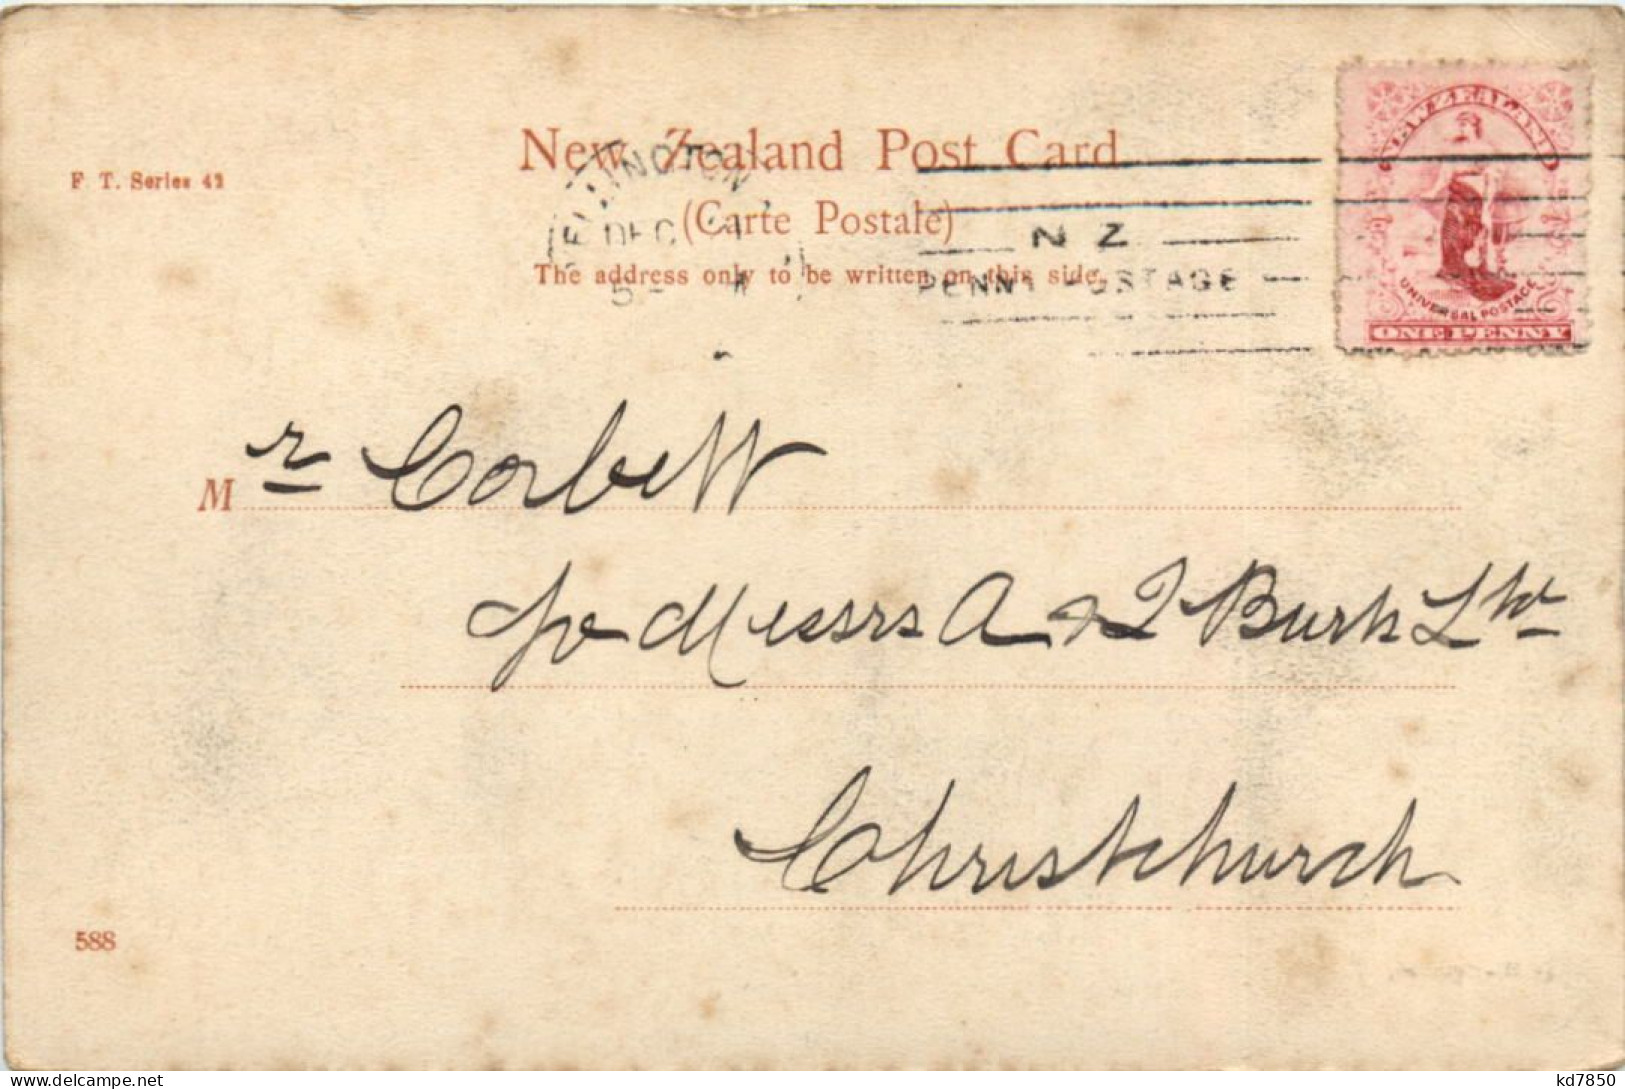 New Zealand Post Card
F T. Series 42
(Carte Postale)
The address only to be written on this side.
WELLINGTON
DEC
5 -
N Z
PENNY POSTAGE
NEW ZEALAND
UNIVERSAL POSTAGE
ONE PENNY
Mr Corbett
c/o Messrs A & T Burt Ltd
Christchurch
588
www.delcampe.net
kd7850